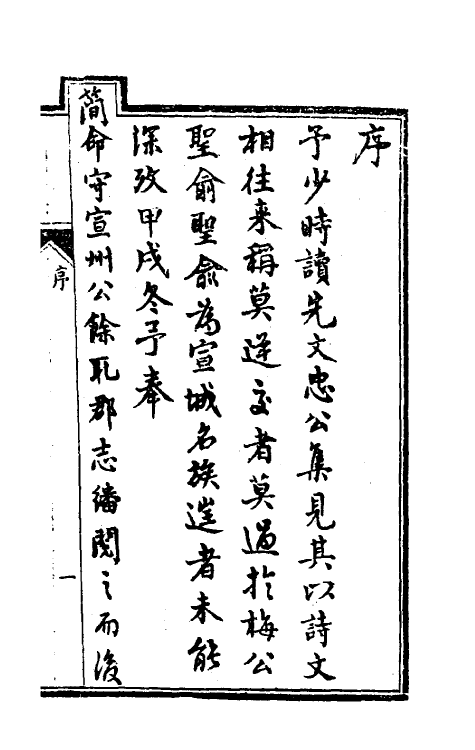 序
予少時讀先文忠公集見其以詩文
相往來稱莫逆交者莫過於梅公
聖俞聖俞為宣城名族遊者未能
深攷甲戌冬予奉
簡命守宣州公餘取郡志繙閱之而後
序
一